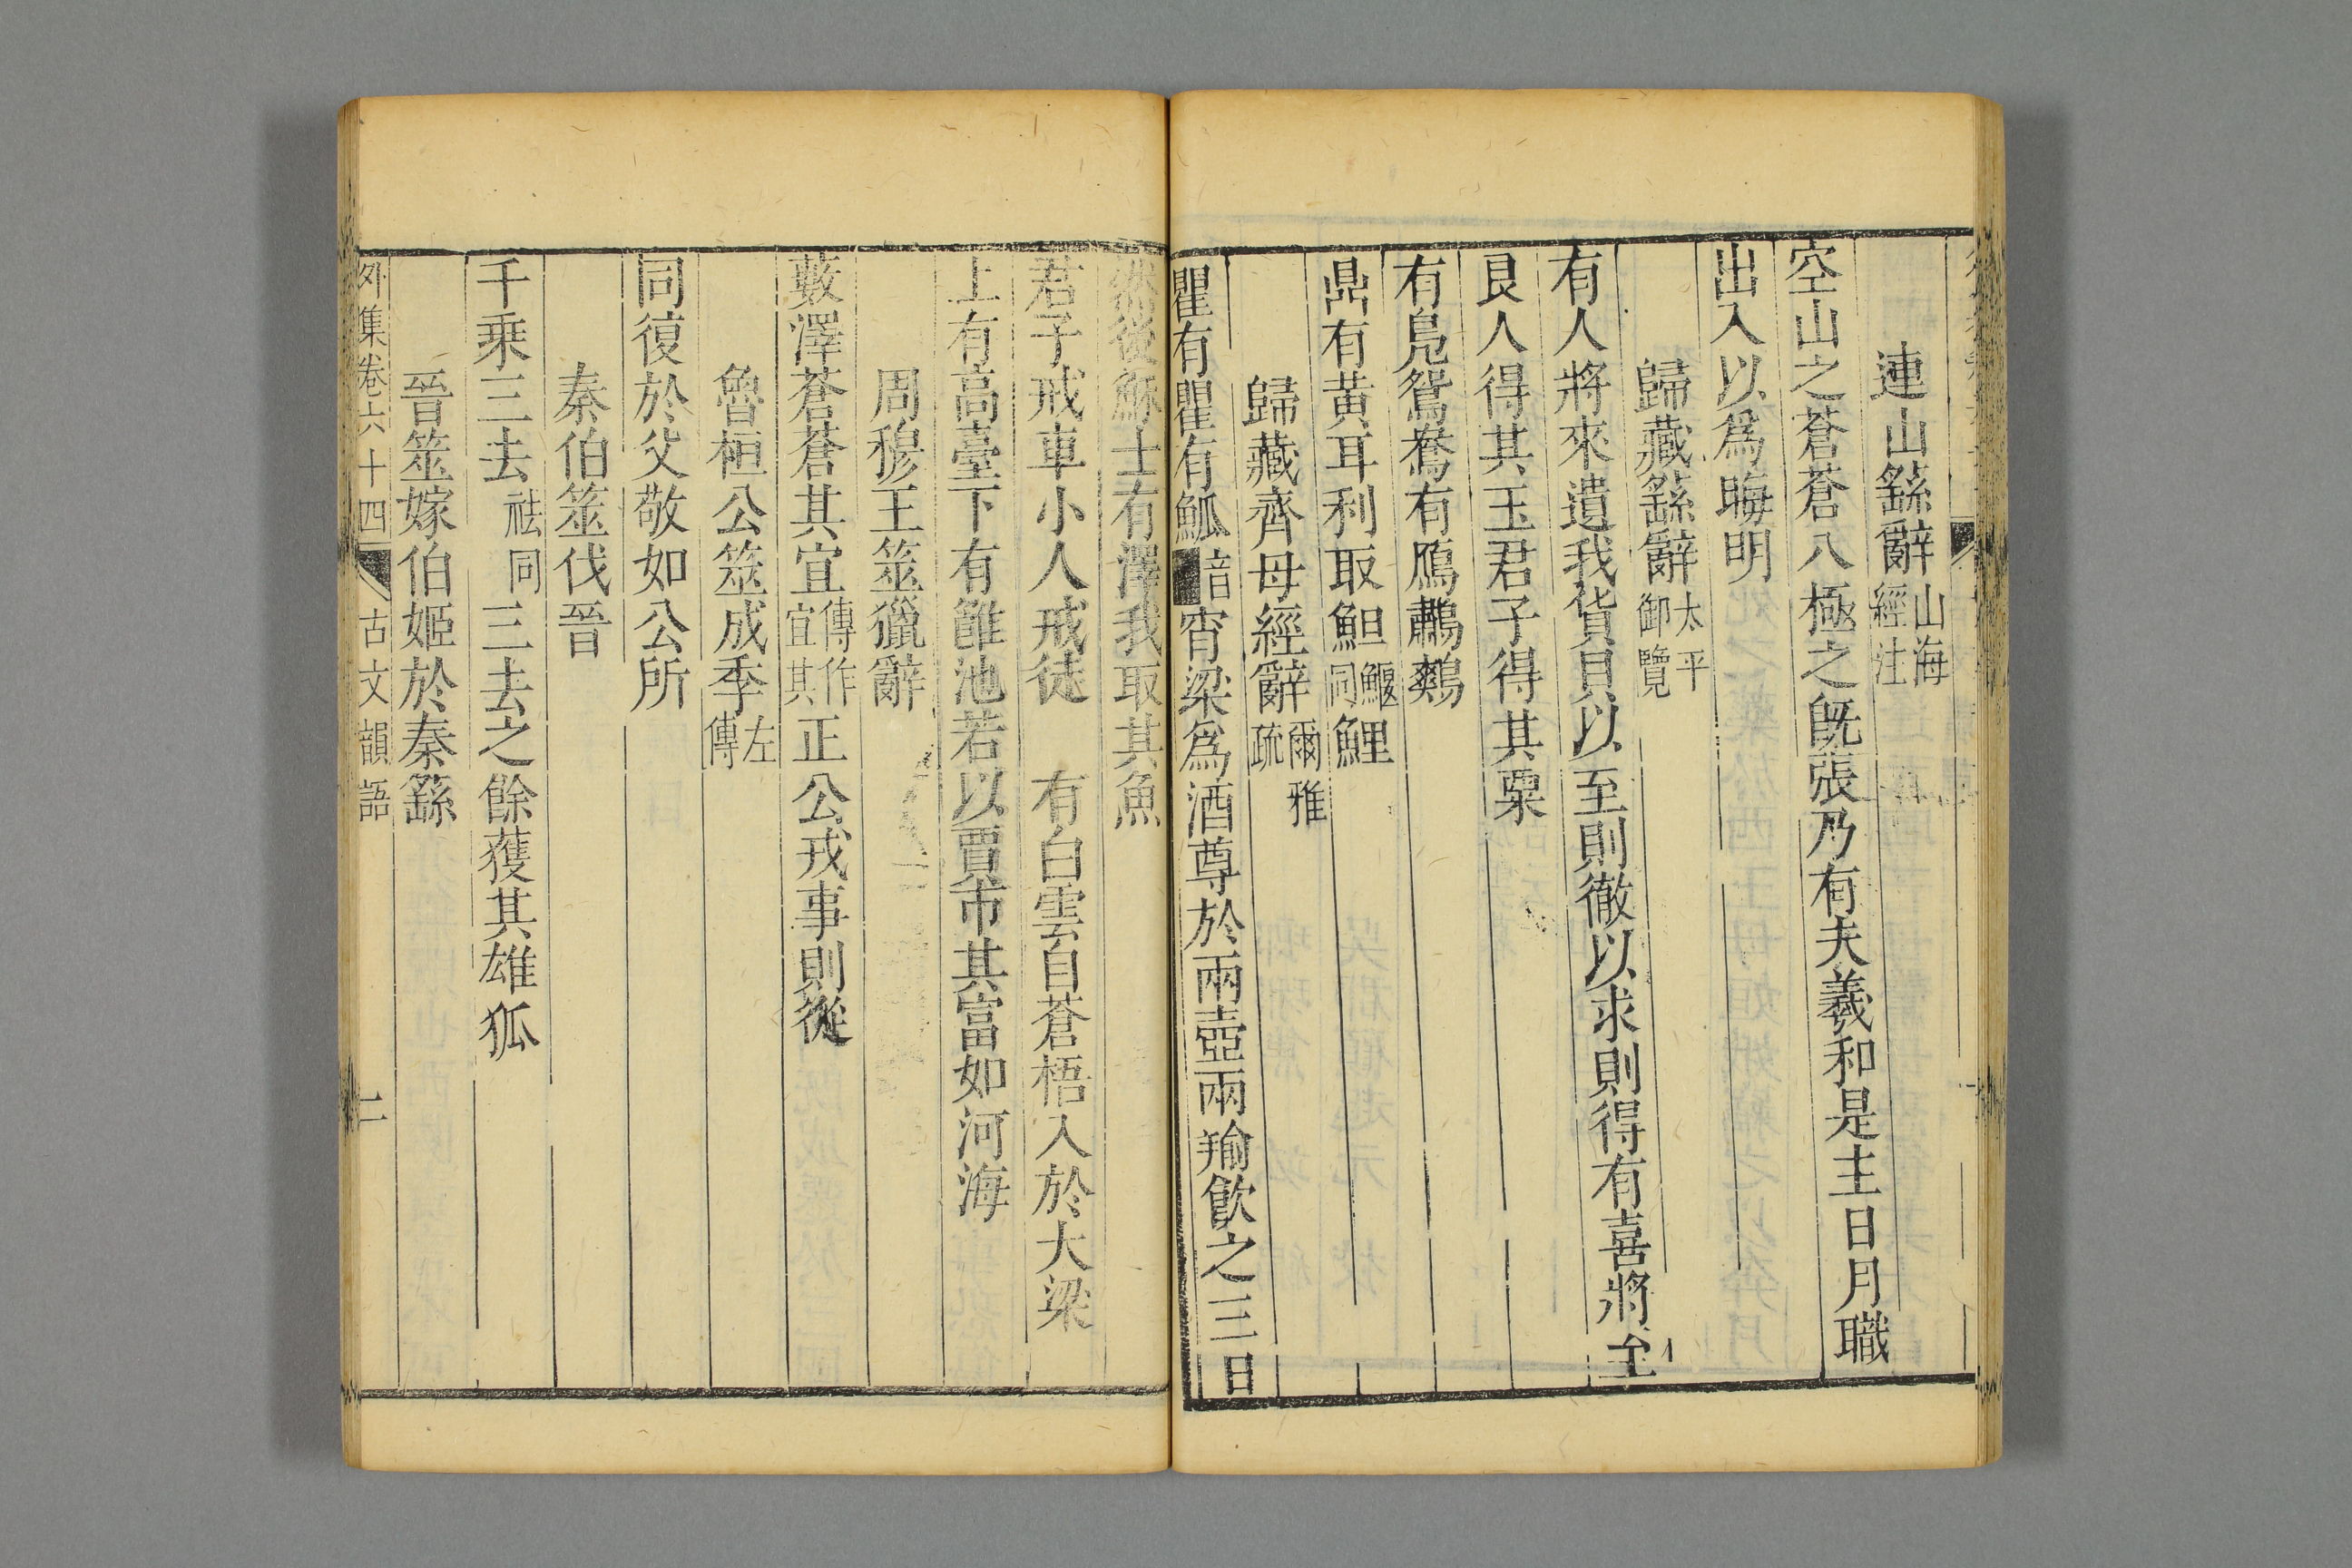 連山繇辭山海經注
空山之蒼蒼八極之旣張乃有夫羲和是主日月職
出入以爲晦明
歸藏繇辭太平御覽
有人將來遺我貨貝以至則徹以求則得有喜將至
良人得其玉君子得其粟
有鳧鴛鴦有鴈鷫鷞
鼎有黃耳利取䱇鰋同鯉
歸藏齊母經辭爾雅疏
瞿有瞿有觚音宵梁爲酒尊於兩壺兩羭飮之三日
然後穌士有澤我取其魚
君子戒車小人戒徒 有白雲自蒼梧入於大梁
上有高臺下有雝池若以賈市其富如河海
周穆王筮獵辭
藪澤蒼蒼其宜傳作宜其正公戎事則從
魯桓公筮成季左傳
同復於父敬如公所
秦伯筮伐晉
千乘三去祛同三去之餘獲其雄狐
晉筮嫁伯姬於秦繇
外集卷六十四 古文韻語 二